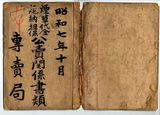 昭和七年十月
煙草代金
花納担保
公売関係書類
専賣局